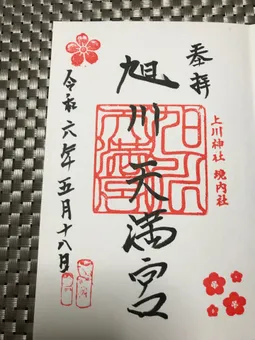 奉拝
上川神社 境内社
旭川天満宮
令和六年五月十八日